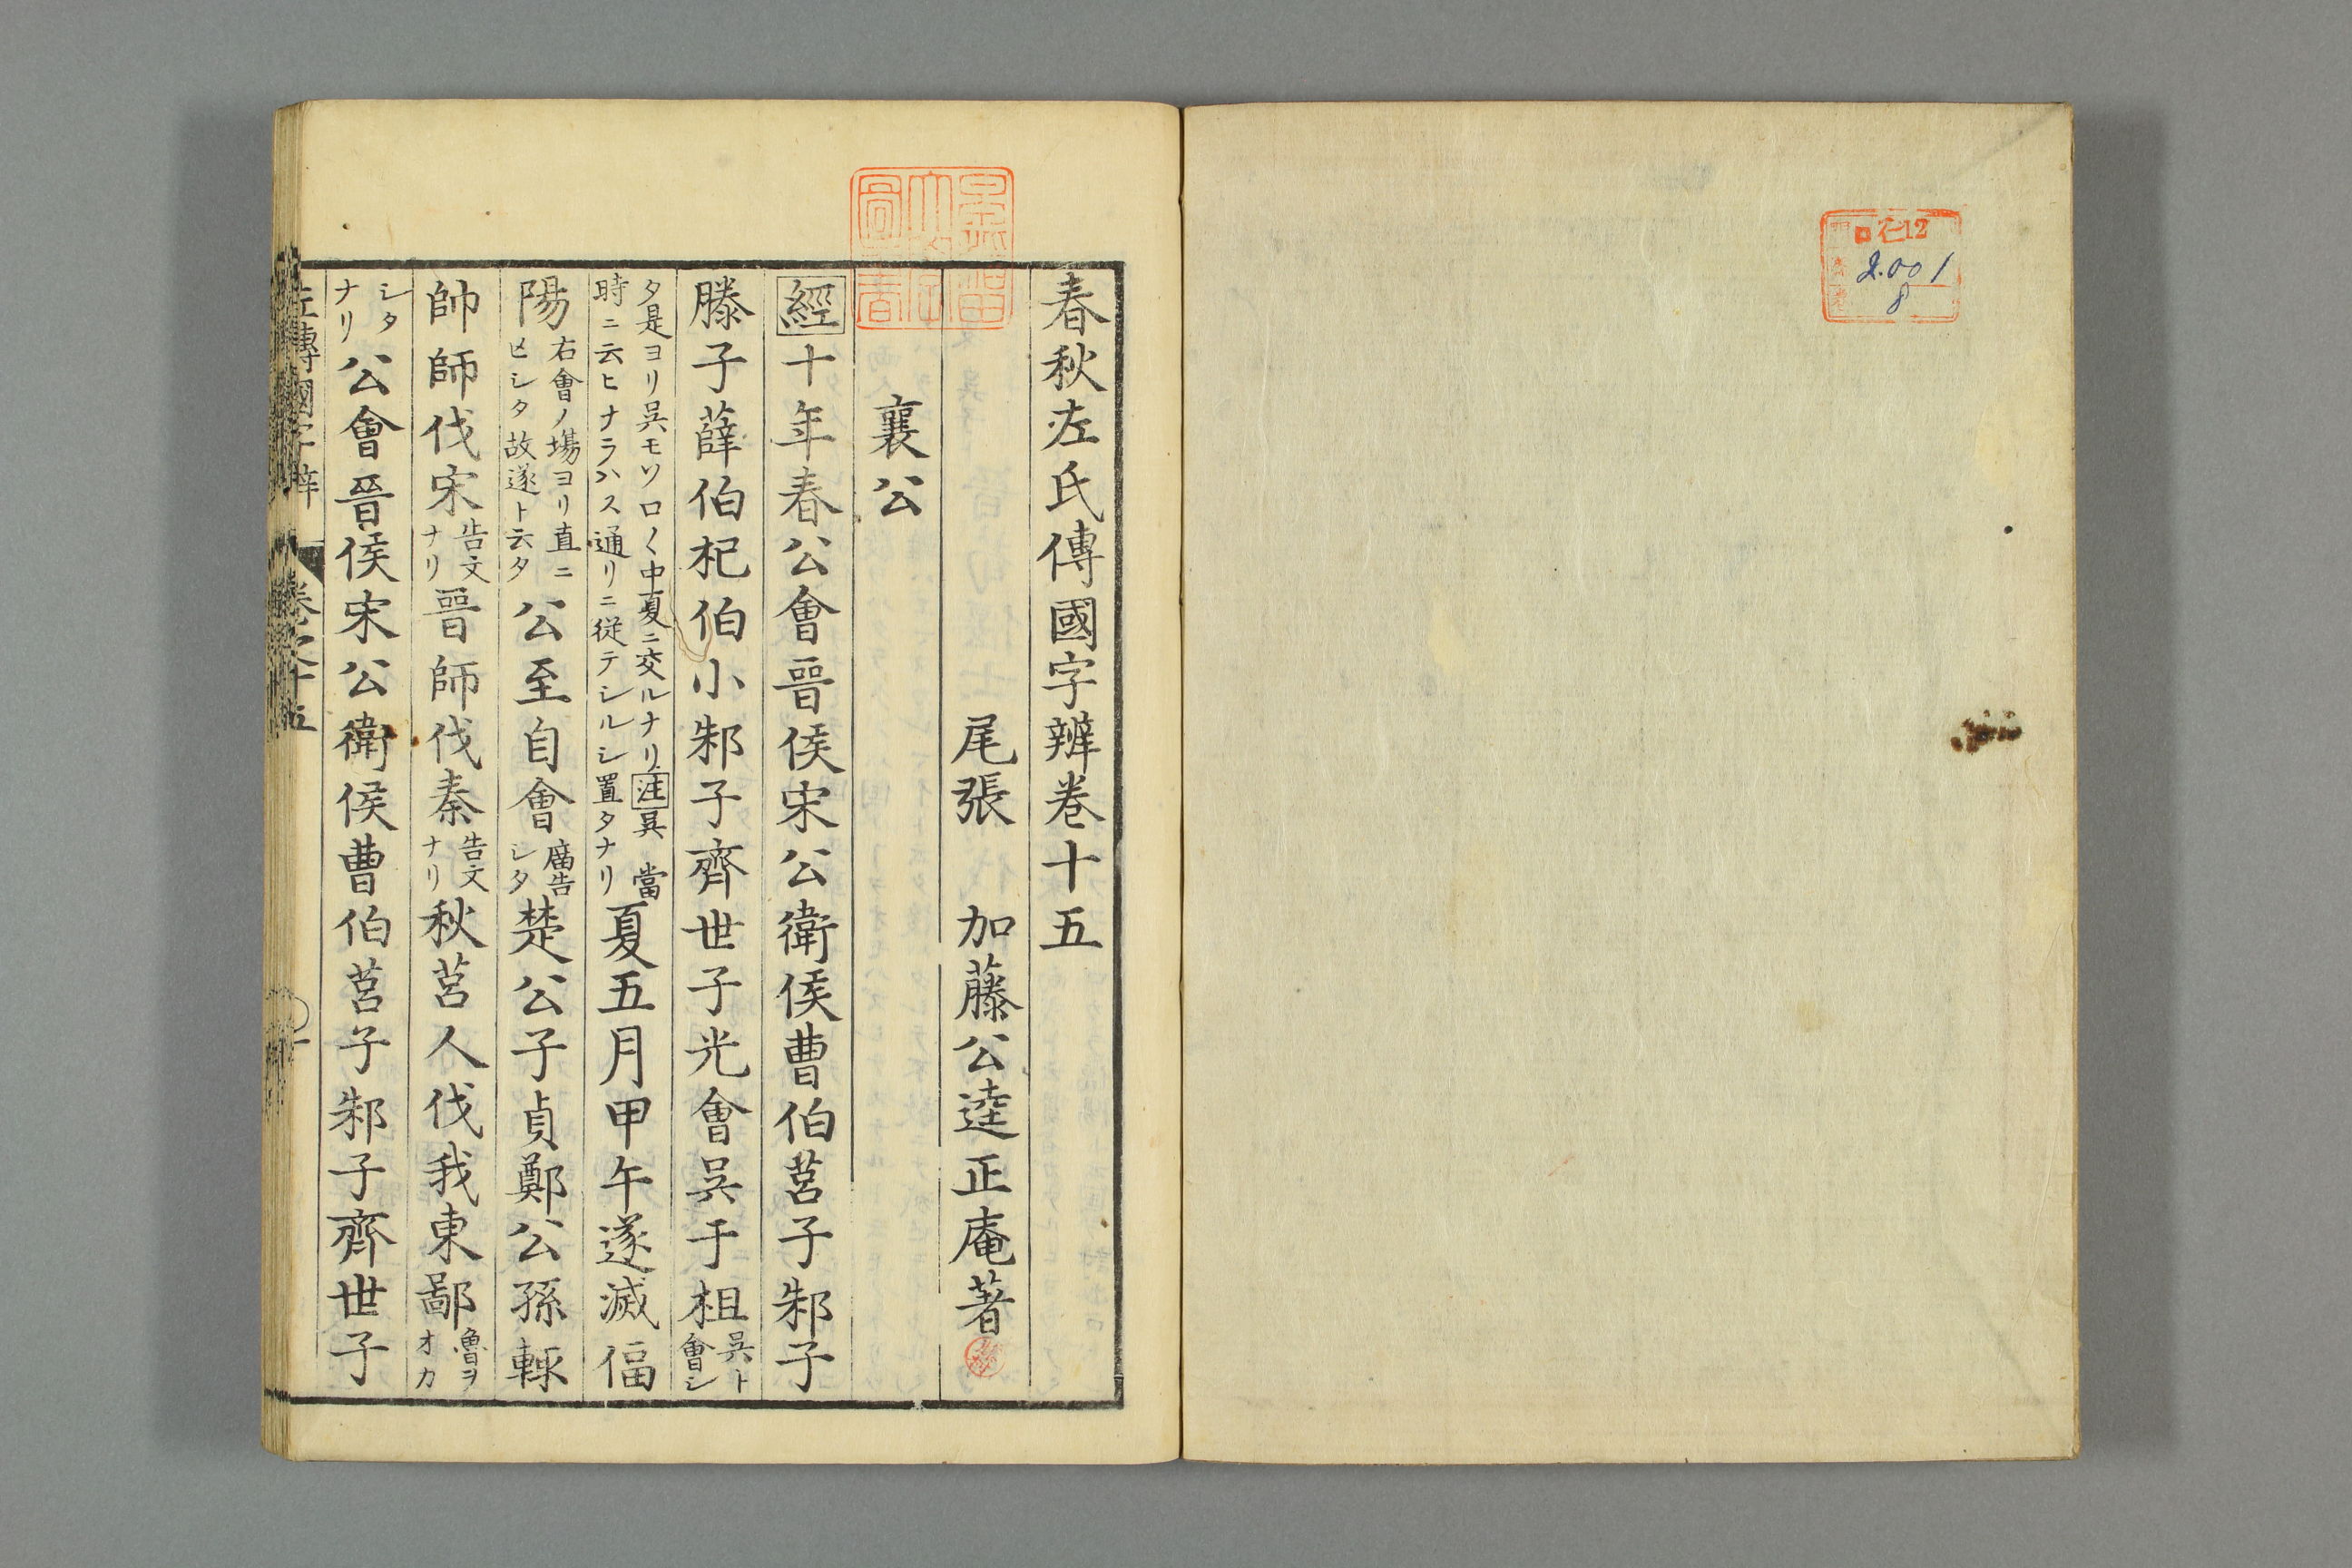 口仁12
2.001
8
春秋左氏傳國字辨卷十五
尾張 加藤公逵正庵著
襄公
經十年春公會晉侯宋公衛侯曹伯莒子邾子
滕子薛伯杞伯小邾子齊世子光會吳于柤吳ト會シ
タ是ヨリ吳モソロ〱中夏ニ交ルナリ注吳 當時ニ云ヒナラハス通リニ従テシルシ置タナリ夏五月甲午遂滅偪
陽右會ノ場ヨリ直ニヒシタ故遂ト云タ公至自會廣告シタ楚公子貞鄭公孫輒
帥師伐宋告文ナリ晉師伐秦告文ナリ秋莒人伐我東鄙魯ヲオカ
シタナリ公會晉侯宋公衛侯曹伯莒子邾子齊世子
左傳國字辨 卷之十五 一